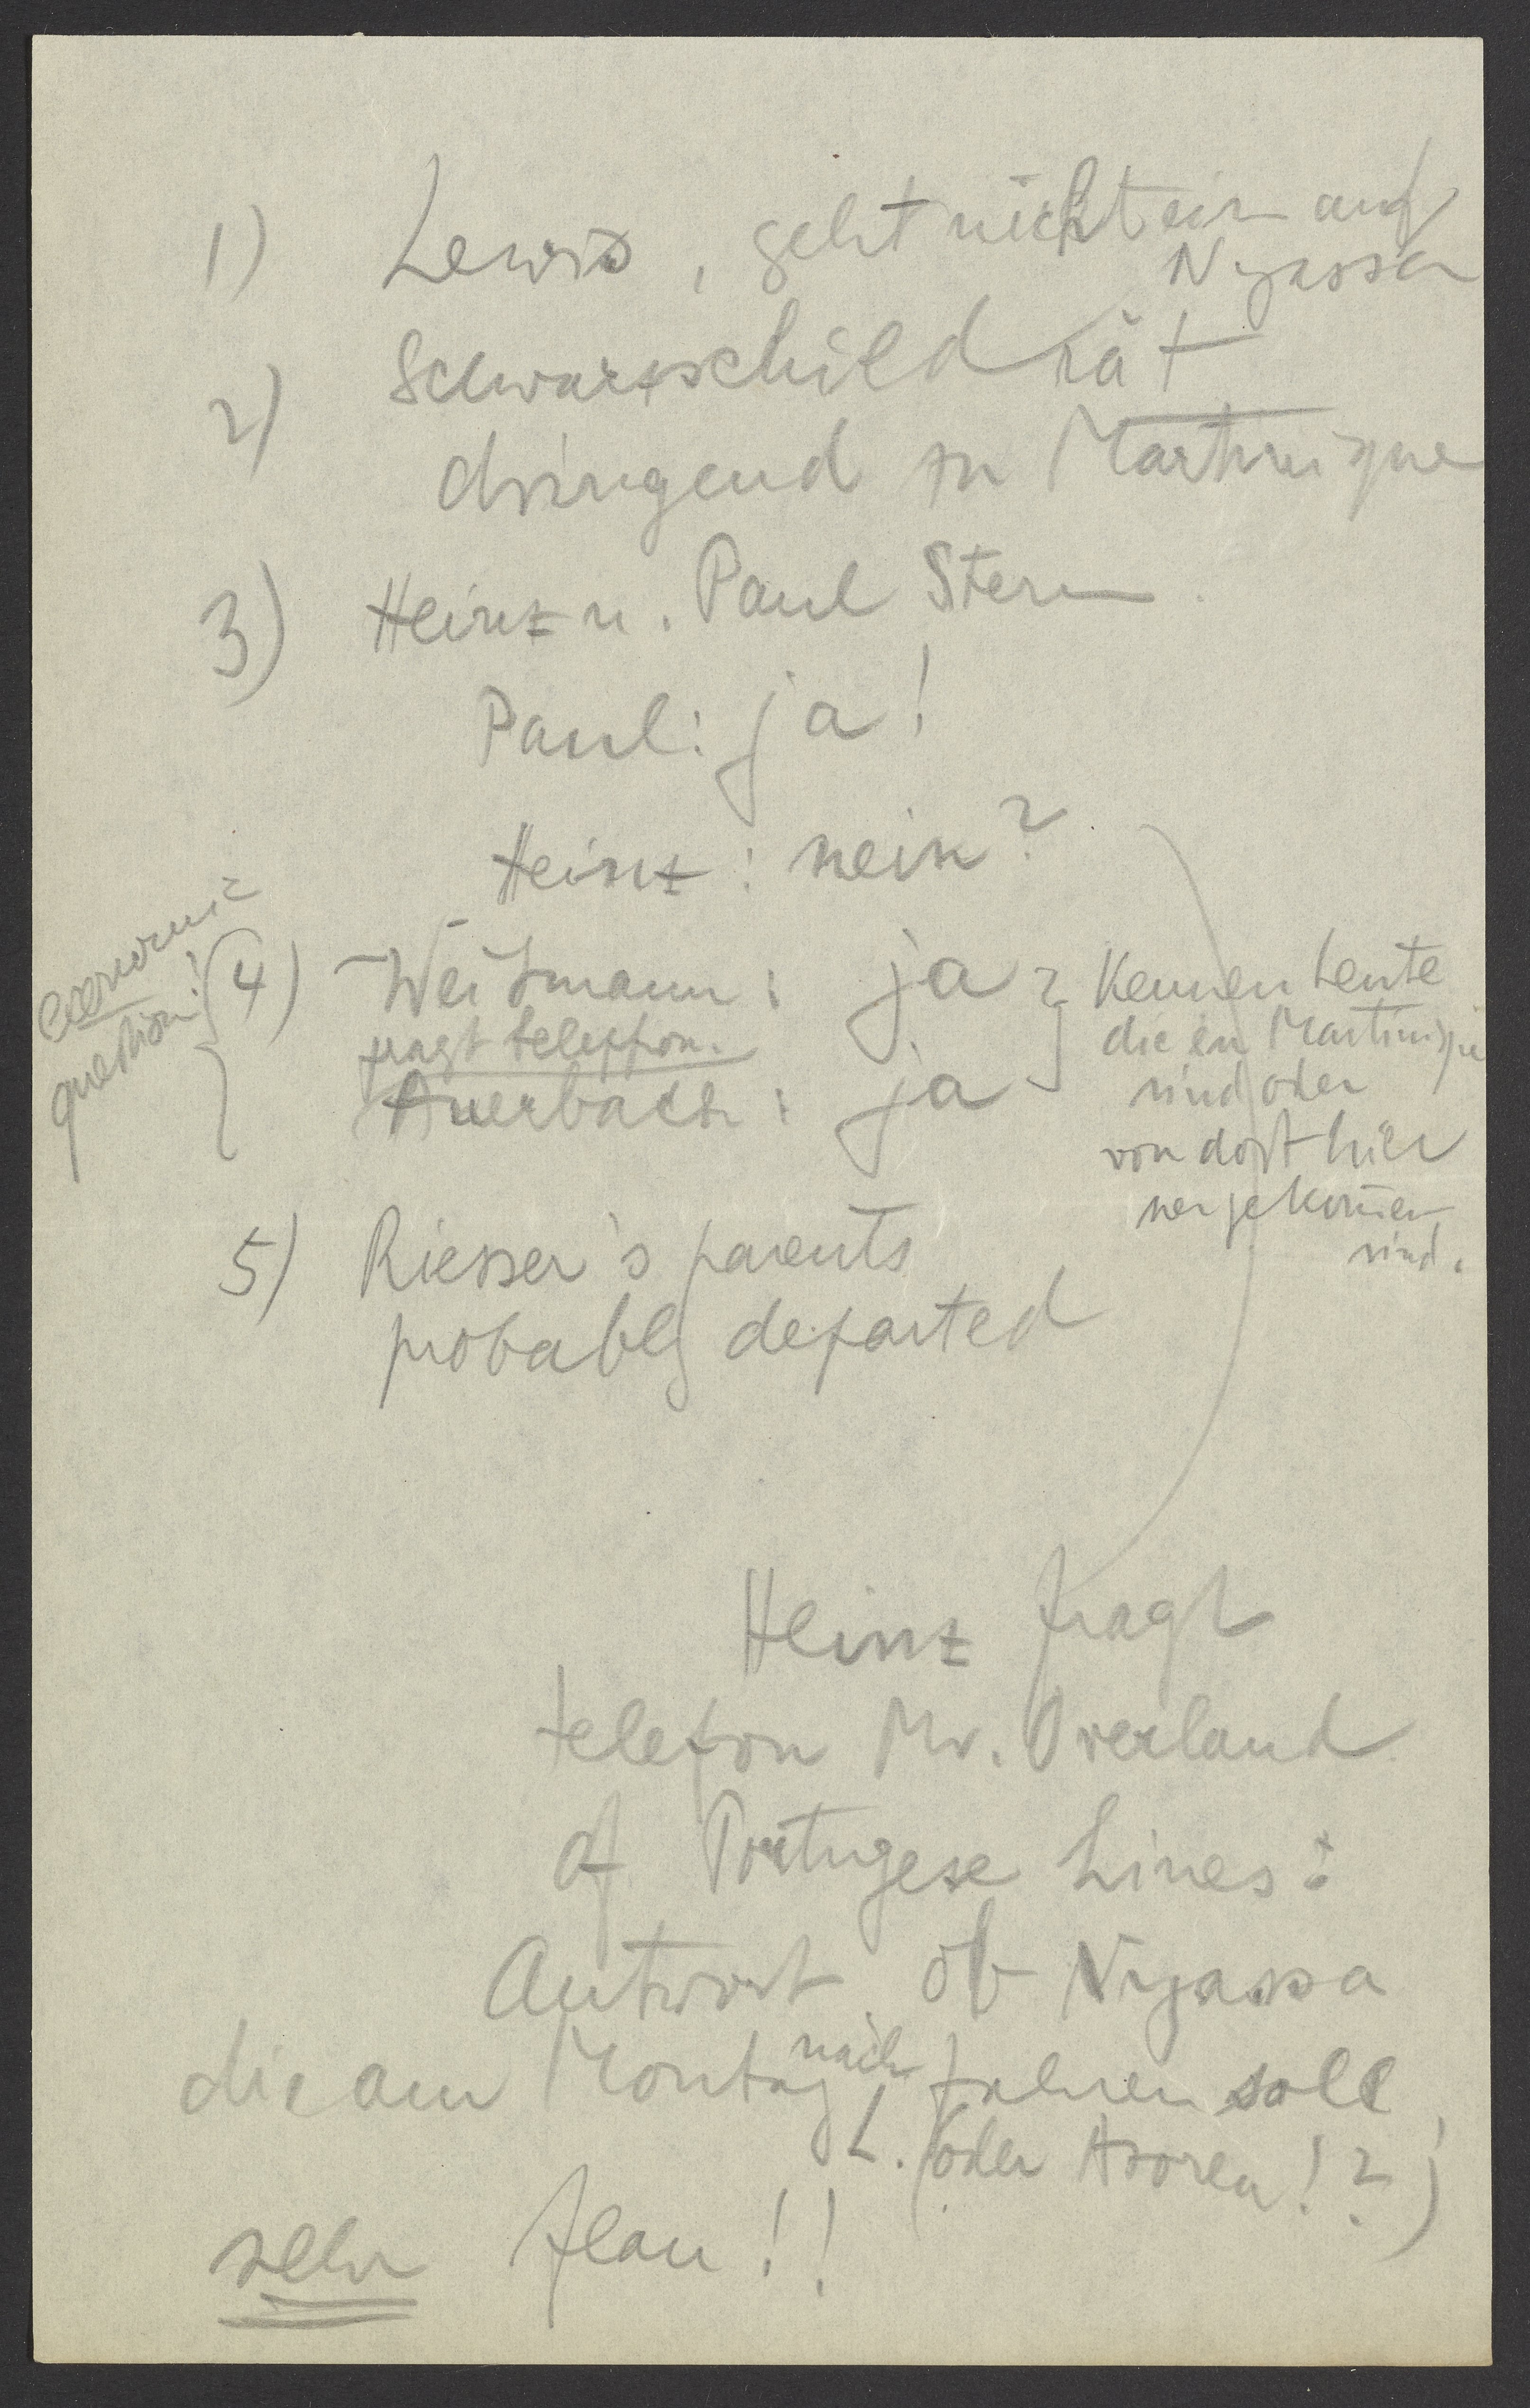 1) Lewis, geht nicht ein auf
Nyassa
2) Schwarzschild rät
dringend zu Martinique
3) Heinz u. Paul Stern
Paul: ja!
Heinz: nein?
economic
question!
(4) Weitmann: ja?
fragt telephon.
Auerbach: ja
Kennen Leute
die in Martinique
sind oder
von dort hier
her gekommen
sind.
5) Riesser's parents
probably departed
Heinz fragt
telefon Mr. Overland
of Portugese Lines:
Antwort ob Nyassa
die am Montag nach fahren soll,
L. (oder Azoren!?)
sehr flau!!